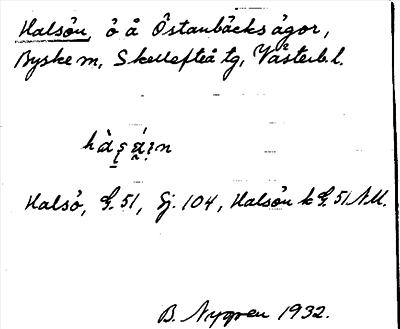 Halsön, ö å Östanbäcks ägor,
Byske m, Skellefteå tg, Västerb. l.
Halsö, G. 51, Gj. 104, Halsön k G. 51 A II.
B. Nygren 1932.